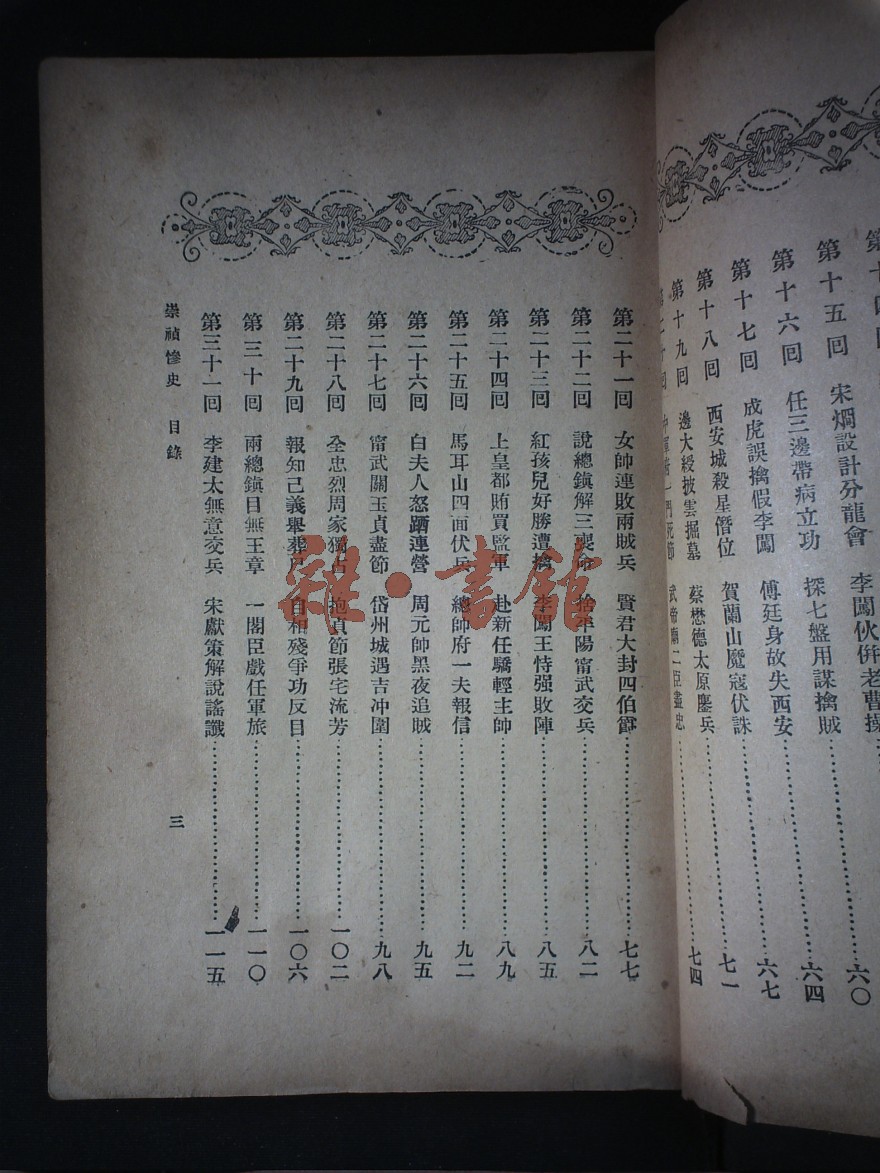 第十五回 宋烱設計分龍會 李闖伙併老曹操 六〇
第十六回 任三邊帶病立功 探七盤用謀擒賊 六四
第十七回 成虎誤擒假李闖 傅廷身故失西安 六七
第十八回 西安城殺星僭位 賀蘭山魔寇伏誅 七一
第十九回 邊大綬披雲掘墓 蔡懋德太原鏖兵 七四
武帝廟二臣盡忠
第二十一回 女帥連敗兩賊兵 賢君大封四伯爵 七七
第二十二回 說總鎮解三喪命 捨平陽甯武交兵 八二
第二十三回 紅孩兒好勝遭擒 李闖王恃强敗陣 八五
第二十四回 上皇都賄買監軍 赴新任驕輕主帥 八九
第二十五回 馬耳山四面伏兵 總帥府一夫報信 九二
第二十六回 白夫人怒躧連營 周元帥黑夜追賊 九五
第二十七回 甯武關玉貞盡節 岱州城遇吉冲圍 九八
第二十八回 全忠烈周家獨占 抱貞節張宅流芳 一〇二
第二十九回 報知己義舉葬尸 自相殘爭功反目 一〇六
第三十回 兩總鎮目無王章 一閣臣戲任軍旅 一一〇
第三十一回 李建太無意交兵 宋獻策解說謠讖 一一五
崇禎慘史 目錄 三
雜·書館